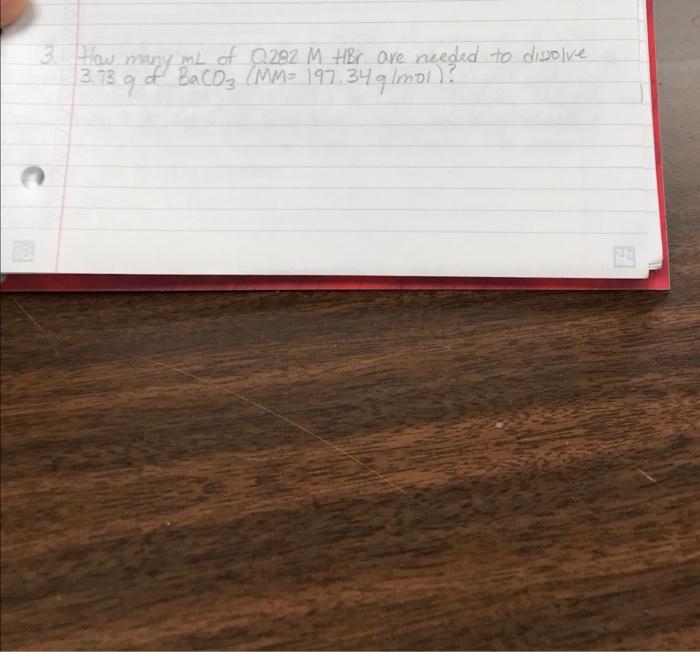 3. How many mL of 0.282 M HBr are needed to dissolve
3.73 g of BaCO3 (MM= 197.34 g/mol)?